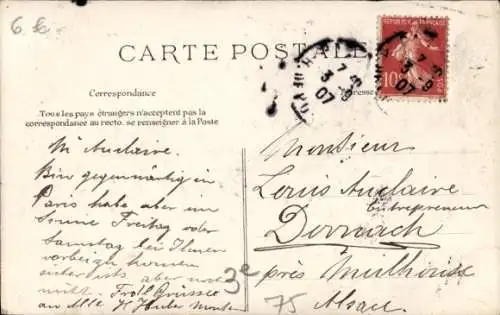 6 €
CARTE POSTALE
Correspondance
Adresse
Tous les pays étrangers n'acceptent pas la
correspondance au recto. se renseigner à la Poste
RÉPUBLIQUE FRANÇAISE
10
7
3 -9
07
7
3 -9
07
Mr Auclaire.
Bin gegenwärtig in
Paris habe aber im
Sinne Freitag oder
Samstag bei Ihnen
vorbeizukommen
aber noch
nicht. Frdl Grüsse
an Alle
Monsieur
Louis Auclaire
Entrepreneur
Dornach
près Mulhouse
Alsace
3e
75